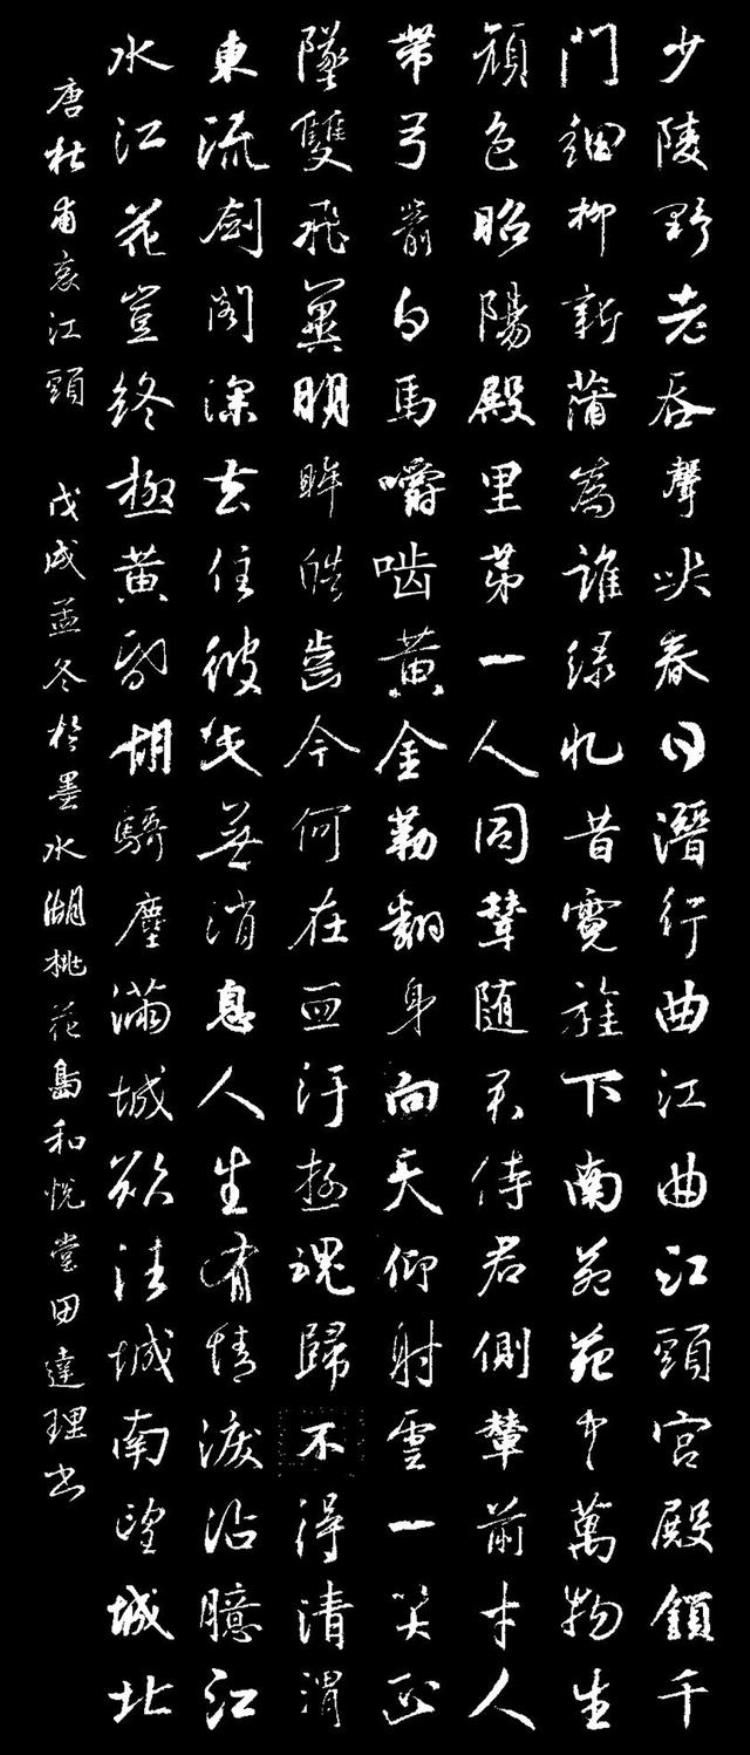 少陵野老吞聲哭春日潛行曲江曲江頭宮殿鎖千
門細柳新蒲為誰綠忆昔霓旌下南苑苑中萬物生
顏色昭陽殿里第一人同輦随君侍君側輦前才人
帶弓箭白馬嚼啮黃金勒翻身向天仰射雲一笑正
墜雙飛翼明眸皓齒今何在血汙遊魂歸不得清渭
東流劍閣深去住彼此無消息人生有情淚沾臆江
水江花豈終極黃昏胡騎塵滿城欲往城南望城北
唐杜甫哀江頭 戊戌孟冬於墨水湖桃花島和悅堂田達理书